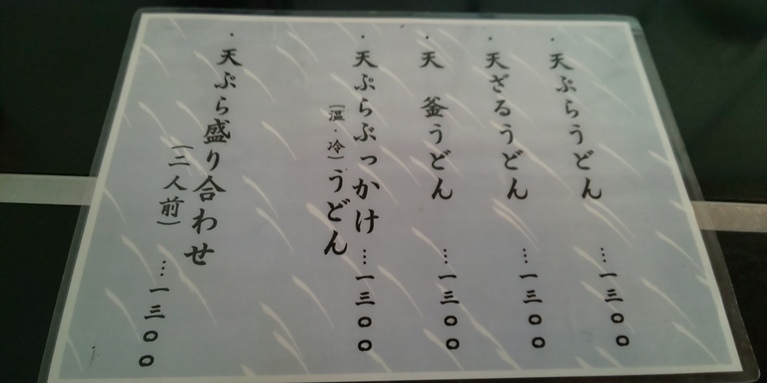 ・天ぷらうどん …一三〇〇
・天ざるうどん …一三〇〇
・天 釜うどん …一三〇〇
・天ぷらぶっかけ…一三〇〇
(温・冷)うどん
・天ぷら盛り合わせ
(二人前) …一三〇〇